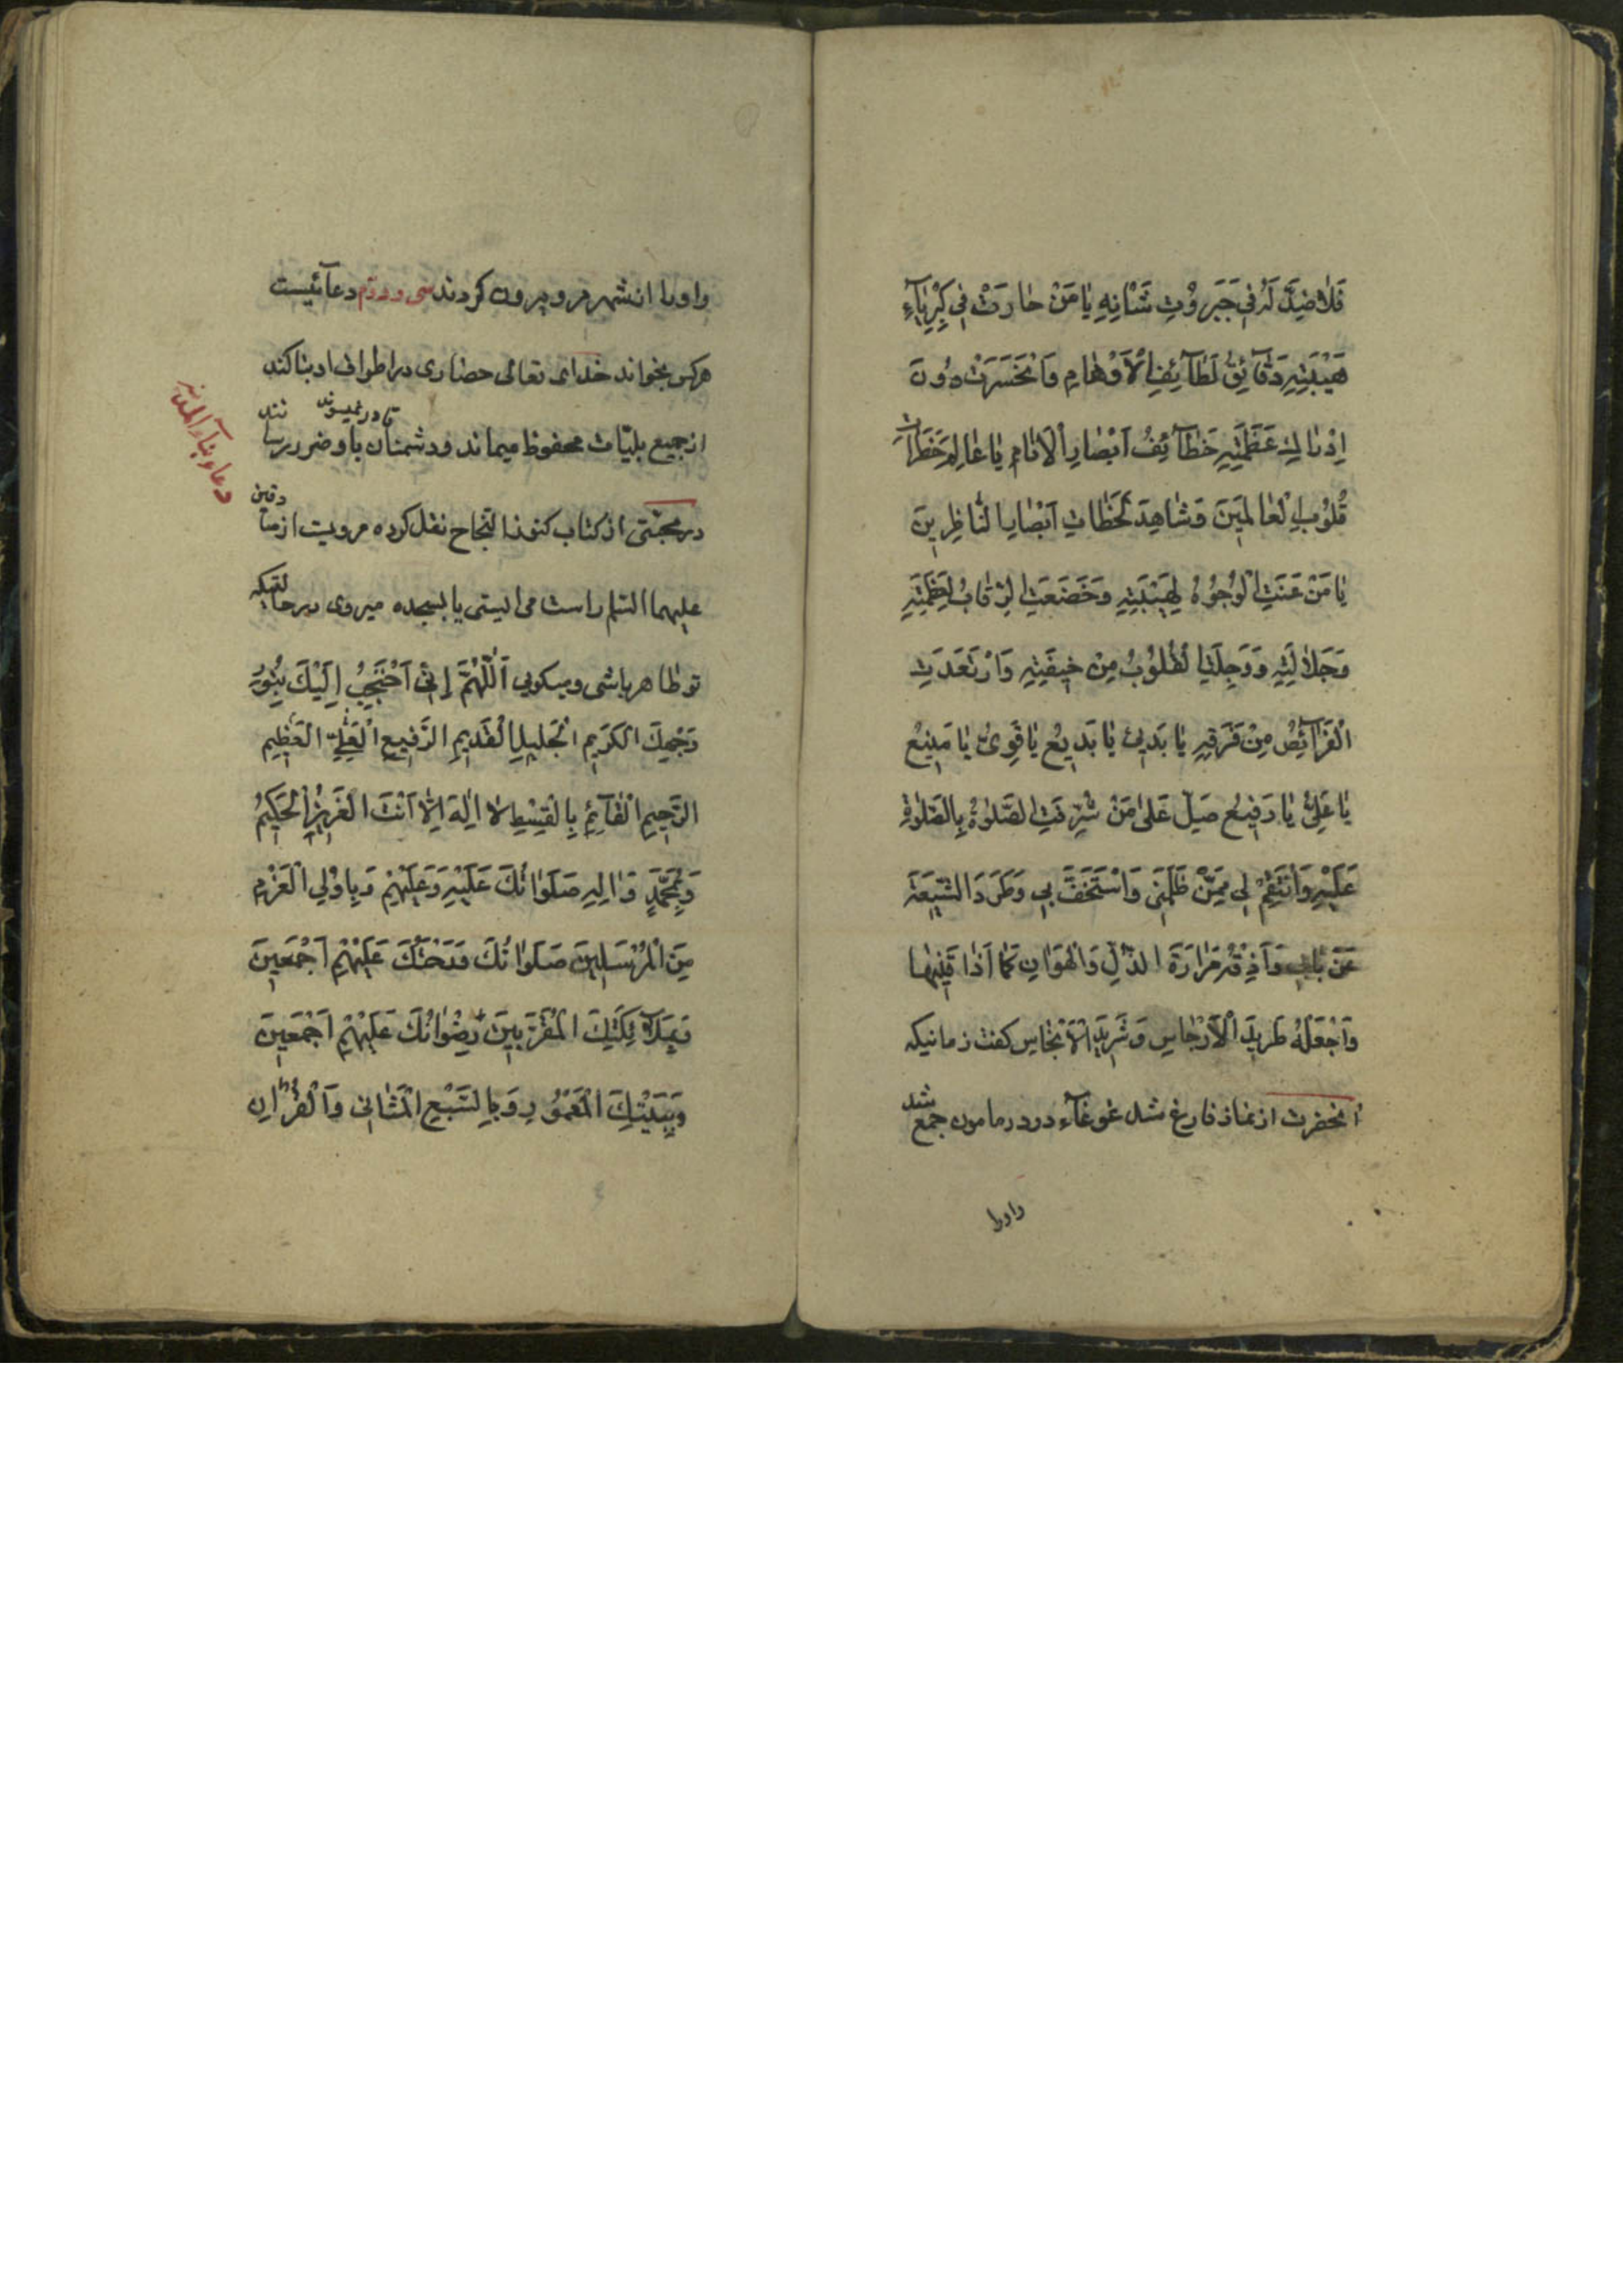 فَلَا ضِدَّ لَهُ فِي جَبَرُوْتِ شَأْنِهِ يَا مَنْ حَارَتْ فِي كِبْرِيَآءِ
هَيْبَتِهِ دَقَآئِقُ لَطَآئِفِ الْأَوْهَامِ وَانْحَسَرَتْ دُوْنَ
اِدْرَاكِ عَظَمَتِهِ خَطَآئِفُ اَبْصَارِ الْاَنَامِ يَا عَالِمَ خَطَرَاتِ
قُلُوْبِ الْعَالَمِيْنَ وَشَاهِدَ لَحَظَاتِ اَبْصَارِ النَّاظِرِيْنَ
يَا مَنْ عَنَتِ الْوُجُوْهُ لِهَيْبَتِهِ وَخَضَعَتِ الرِّقَابُ لِعَظَمَتِهِ
وَجَلَالَتِهِ وَوَجِلَتِ الْقُلُوْبُ مِنْ خِيْفَتِهِ وَارْتَعَدَتِ
الْفَرَآئِصُ مِنْ فَرَقِهِ يَا بَدِيْءُ يَا بَدِيْعُ يَا قَوِيُّ يَا مَنِيْعُ
يَا عَلِيُّ يَا رَفِيْعُ صَلِّ عَلٰى مَنْ شُرِّفَتِ الصَّلٰوةُ بِالصَّلٰوةِ
عَلَيْهِ وَانْتَقِمْ لِي مِمَّنْ ظَلَمَنِي وَاسْتَخَفَّ بِي وَطَرَدَ الشِّيْعَةَ
عَنْ بَابِي وَاَذِقْهُ مَرَارَةَ الذُّلِّ وَالْهَوَانِ كَمَا اَذَاقَنِيْهَا
وَاجْعَلْهُ طَرِيْدَ الْاَرْجَاسِ وَشَرِيْدَ الْاَنْجَاسِ كفت زمانيكه
آنحضرت از نماز فارغ شد غوغآء در در مامون جمع شد
واورا
واورا از شهر مرو بيرون كردند سى ودوّم دعآئيست
هركس بخواند خداى تعالى حصارى در اطراف او بنا كند
از جميع بليّات محفوظ ميماند و دشمنان باو ضرر رسا نند
تا در نميسوند
دعاء بنآء المدينه
در مجتنى از كتاب كنوز النجاح نقل كرده مرويست از صا دقين
عليهما السّلم راست مى ايستى يا بسجده ميروى در حا لتيكه
تو طاهر باشى و ميكوبى اَللّٰهُمَّ اِنِّي اَحْتَجِبُ اِلَيْكَ بِنُوْرِ
وَجْهِكَ الْكَرِيْمِ الْجَلِيْلِ الْقَدِيْمِ الرَّفِيْعِ الْعَلِيِّ الْعَظِيْمِ
الرَّحِيْمِ الْقَآئِمِ بِالْقِسْطِ لَا اِلٰهَ اِلَّا اَنْتَ الْعَزِيْزُ الْحَكِيْمُ
وَبِمُحَمَّدٍ وَاٰلِهِ صَلَوَاتُكَ عَلَيْهِ وَعَلَيْهِمْ وَبِاُوْلِي الْعَزْمِ
مِنَ الْمُرْسَلِيْنَ صَلَوَاتُكَ وَرَحْمَتُكَ عَلَيْهِمْ اَجْمَعِيْنَ
وَبِمَلَآئِكَتِكَ الْمُقَرَّبِيْنَ رِضْوَانُكَ عَلَيْهِمْ اَجْمَعِيْنَ
وَبِبَيْتِكَ الْمَعْمُوْرِ وَبِالسَّبْعِ الْمَثَانِي وَالْقُرْاٰنِ